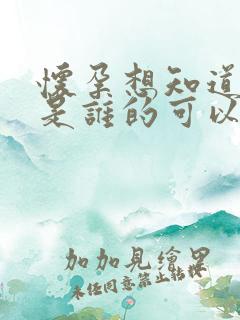 懷孕想知道
是誰的可以
加加見繪里
未任同意禁止轉